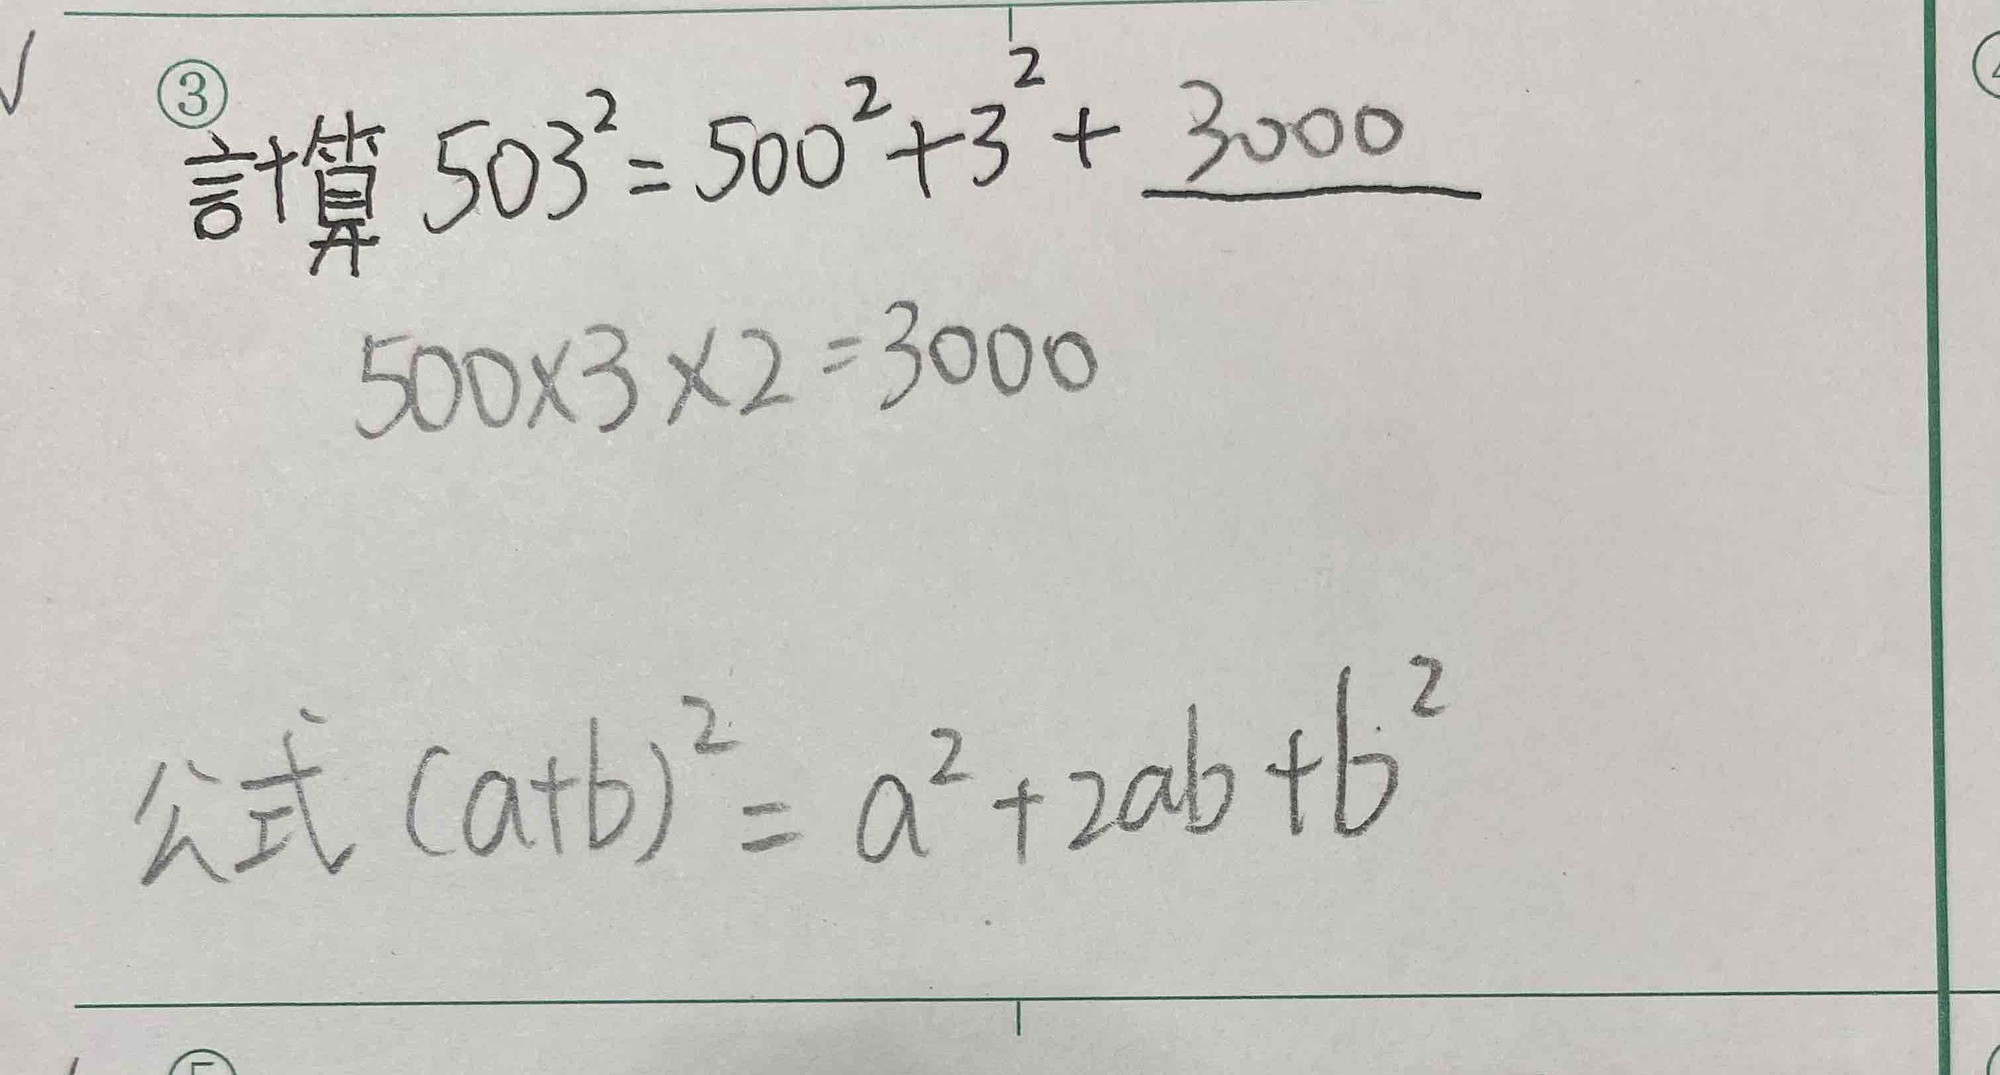 ③
計算 503² = 500² + 3² + 3000
500×3×2=3000
公式 (a+b)² = a² + 2ab + b²